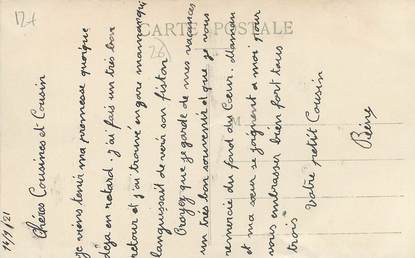 12f
CARTE POSTALE
(26)
14/9/21
Cheres Cousines et Cousin
je viens tenir ma promesse quoique
déja en retard. j'ai fais un très bon
retour et j'ai trouvé en gare maman qui
languissait de voir son fiston
Croyez que je garde de mes vacances
un très bon souvenir et que je vous
remercie du fond du Cœur. Maman
et ma sœur se joignent a moi pour
vous embrasser bien fort tous
trois
Votre petit Cousin